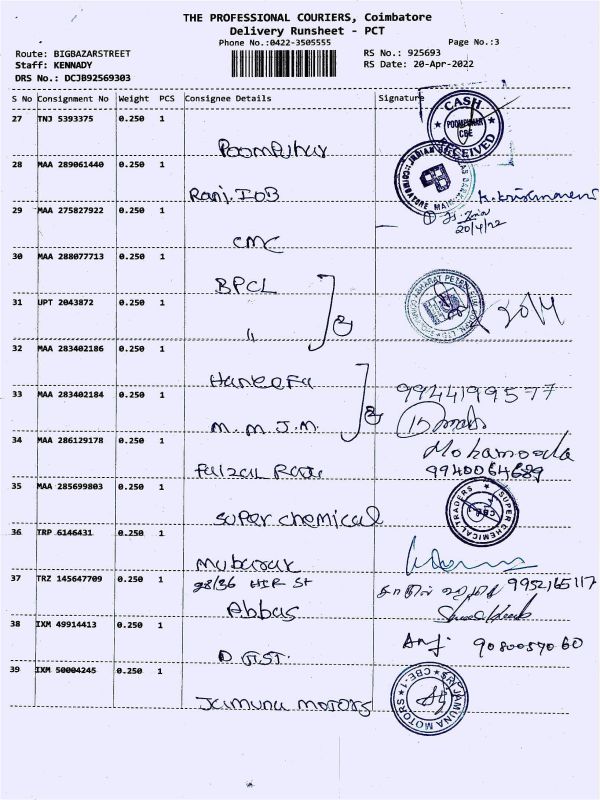 THE PROFESSIONAL COURIERS, Coimbatore
Delivery Runsheet - PCT
Phone No.:0422-3505555
Page No.:3
Route: BIGBAZARSTREET
Staff: KENNADY
DRS No.: DCJB92569303
RS No.: 925693
RS Date: 20-Apr-2022
S No Consignment No Weight PCS Consignee Details Signature
27 TNJ 5393375 0.250 1 Poompuhar
CASH RECEIVED POOMPUHAR CBE
28 MAA 289061440 0.250 1 Ranj. IOB
COIMBATORE MAIN
29 MAA 275827922 0.250 1 CMC
20/4/22
30 MAA 288077713 0.250 1 BPCL
31 UPT 2043872 0.250 1 "
20/4
32 MAA 283402186 0.250 1 Haneefa
33 MAA 283402184 0.250 1 M.M.J.M.
9944199577
34 MAA 286129178 0.250 1
Mohamooda
9940064689
35 MAA 285699803 0.250 1 Super chemical
SUPER CHEMICAL TRADERS CBE-1
36 TRP 6146431 0.250 1 Mubarak
28/36 HIR St
37 TRZ 145647709 0.250 1 Abbas
9952165117
38 IXM 49914413 0.250 1 D GST.
9080057060
39 IXM 50004245 0.250 1 Jamuna motors
SRI JAMUNA MOTORS CBE-1